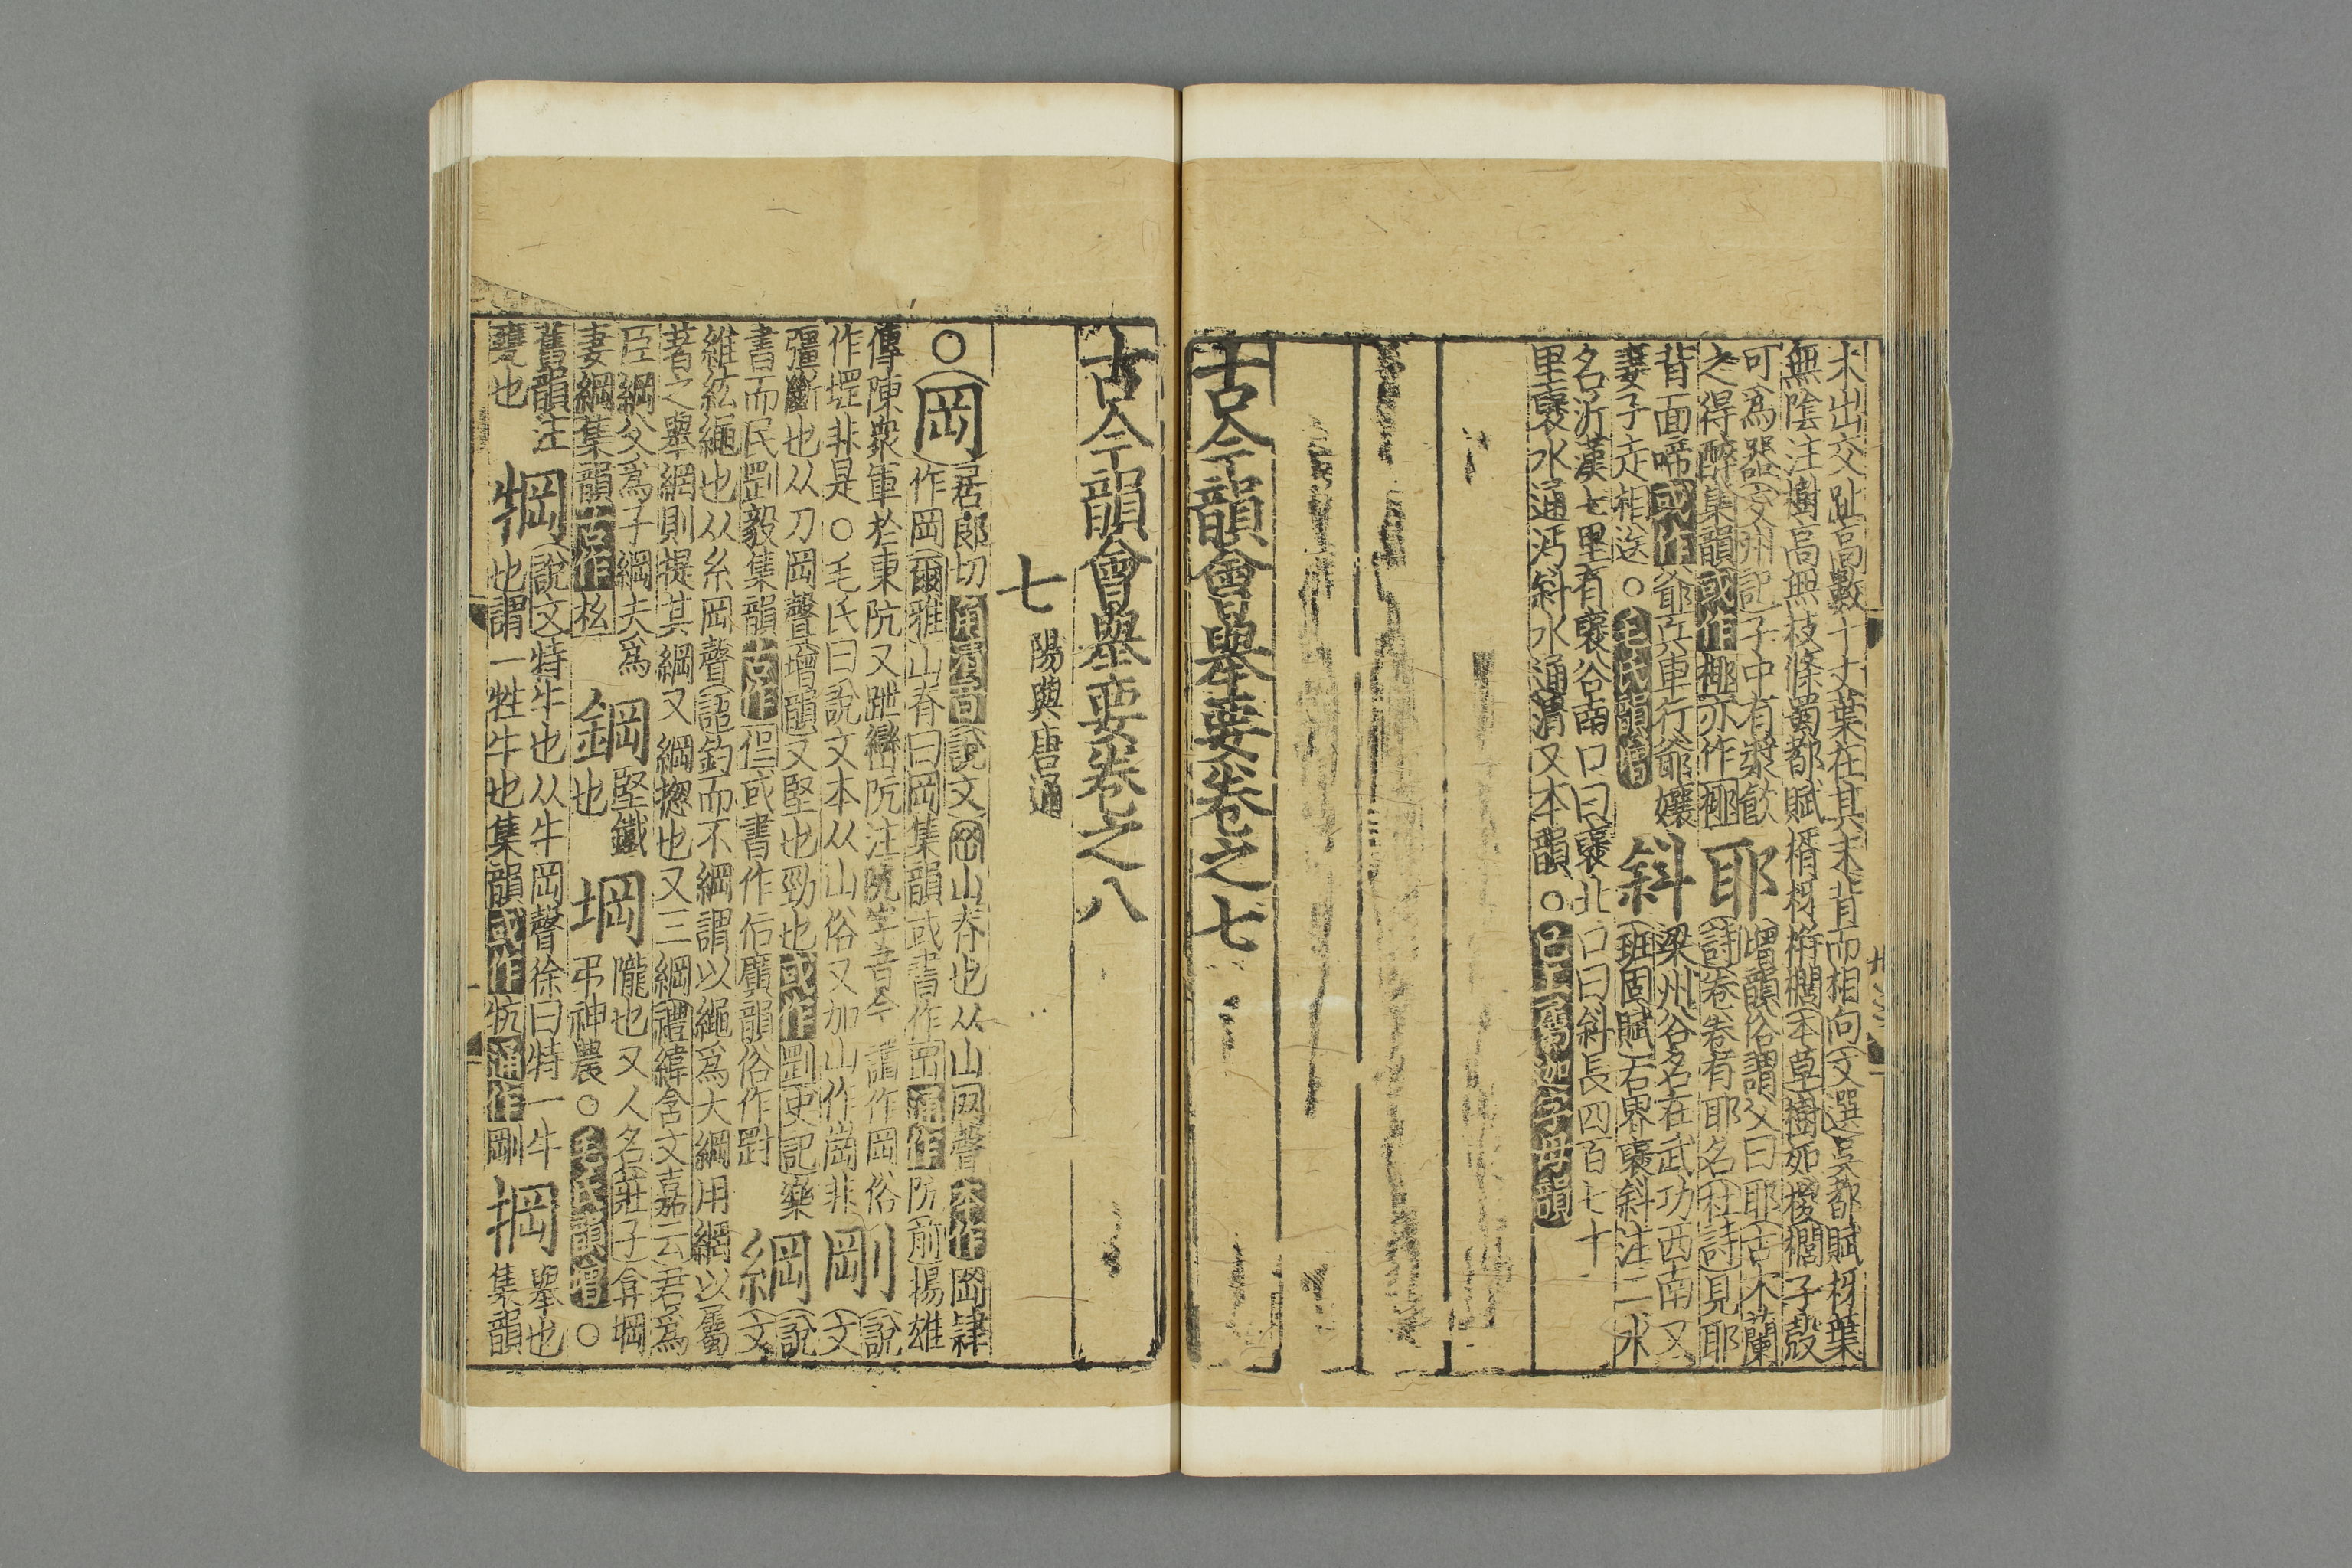 末出交趾高數十丈葉在其末背而相向文選吳都賦枒葉
無陰注樹高無枝條蜀都賦楈枒栟櫚本草樹如椶櫚子殼
可爲器交州記子中有漿飲
之得醉集韻或作梛亦作㭨
耶
增韻俗謂父曰耶古木蘭
詩卷卷有耶名杜詩見耶
背面啼或作爺兵車行爺孃
妻子走相送○毛氏韻增
斜
梁州谷名在武功西南又
班固賦右界褒斜注二水
名沂漢七里有褒谷南口曰褒北口曰斜長四百七十
里褒水通沔斜水通渭又本韻○已上屬迦字母韻
古今韻會舉要卷之七
古今韻會舉要卷之八
七
陽與唐通
○岡
居郞切角清音說文岡山脊也从山网聲本作岡隷
作岡爾雅山脊曰岡集韻或書作𡶩通作阬前揚雄
傳陳衆車於東阬又跇巒阬注阬字音今 謂作岡俗
作堽非是○毛氏曰說文本从山俗又加山作崗非
剛
說文
彊斷也从刀岡聲增韻又堅也勁也或作𠛗史記樂
書而民𠛗毅集韻古作㐰或書作后廣韻俗作㓻
綱
說文
維紘繩也从糸岡聲語釣而不綱謂以繩爲大綱用網以屬
著之舉網則提其綱又綱摠也又三綱禮緯含文嘉云君爲
臣綱父爲子綱夫爲
妻綱集韻古作𣏓
鋼
堅鐵
也
堈
隴也又人名莊子弇堈
弔神農○毛氏韻增○
舊韻注
甕也
犅
說文特牛也从牛岡聲徐曰特一牛
也謂一牲牛也集韻或作㸩通作剛
掆
舉也
集韻